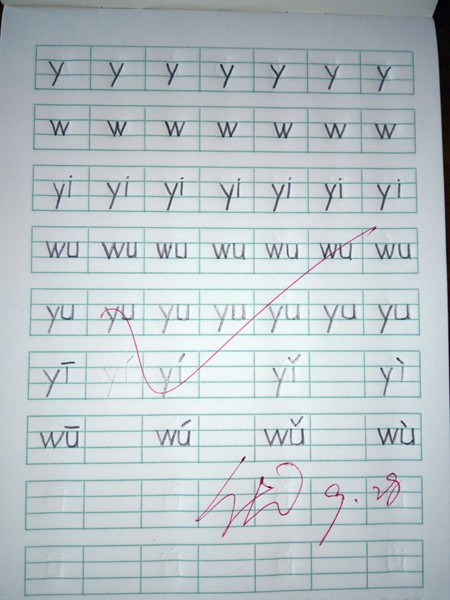 y y y y y y y
w w w w w w w
yi yi yi yi yi yi yi
wu wu wu wu wu wu wu
yu yu yu yu yu yu yu
yī yí yí yǐ yì
wū wú wǔ wù
9.28